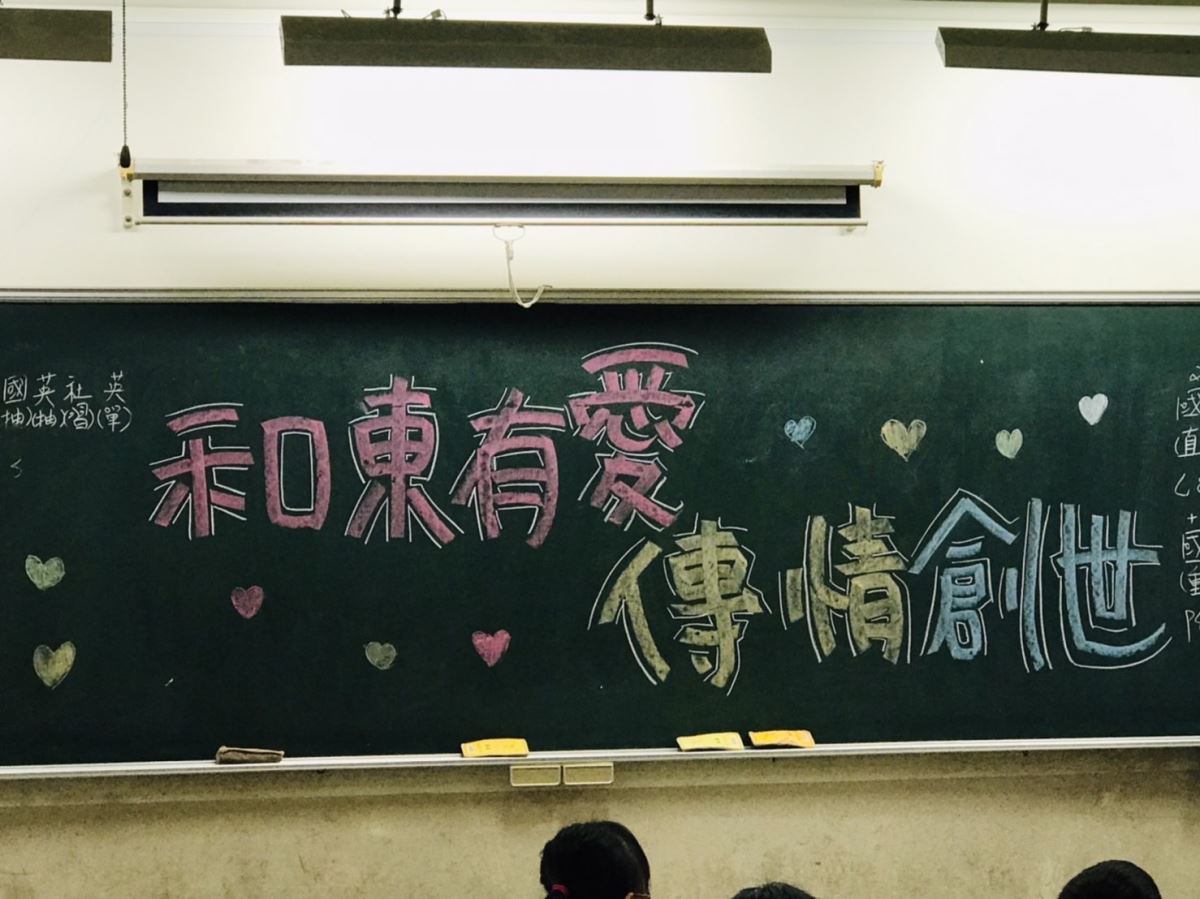 國英社英
(抽)(抽)(習)(單)
和東有愛
傳情創世
國
直
國